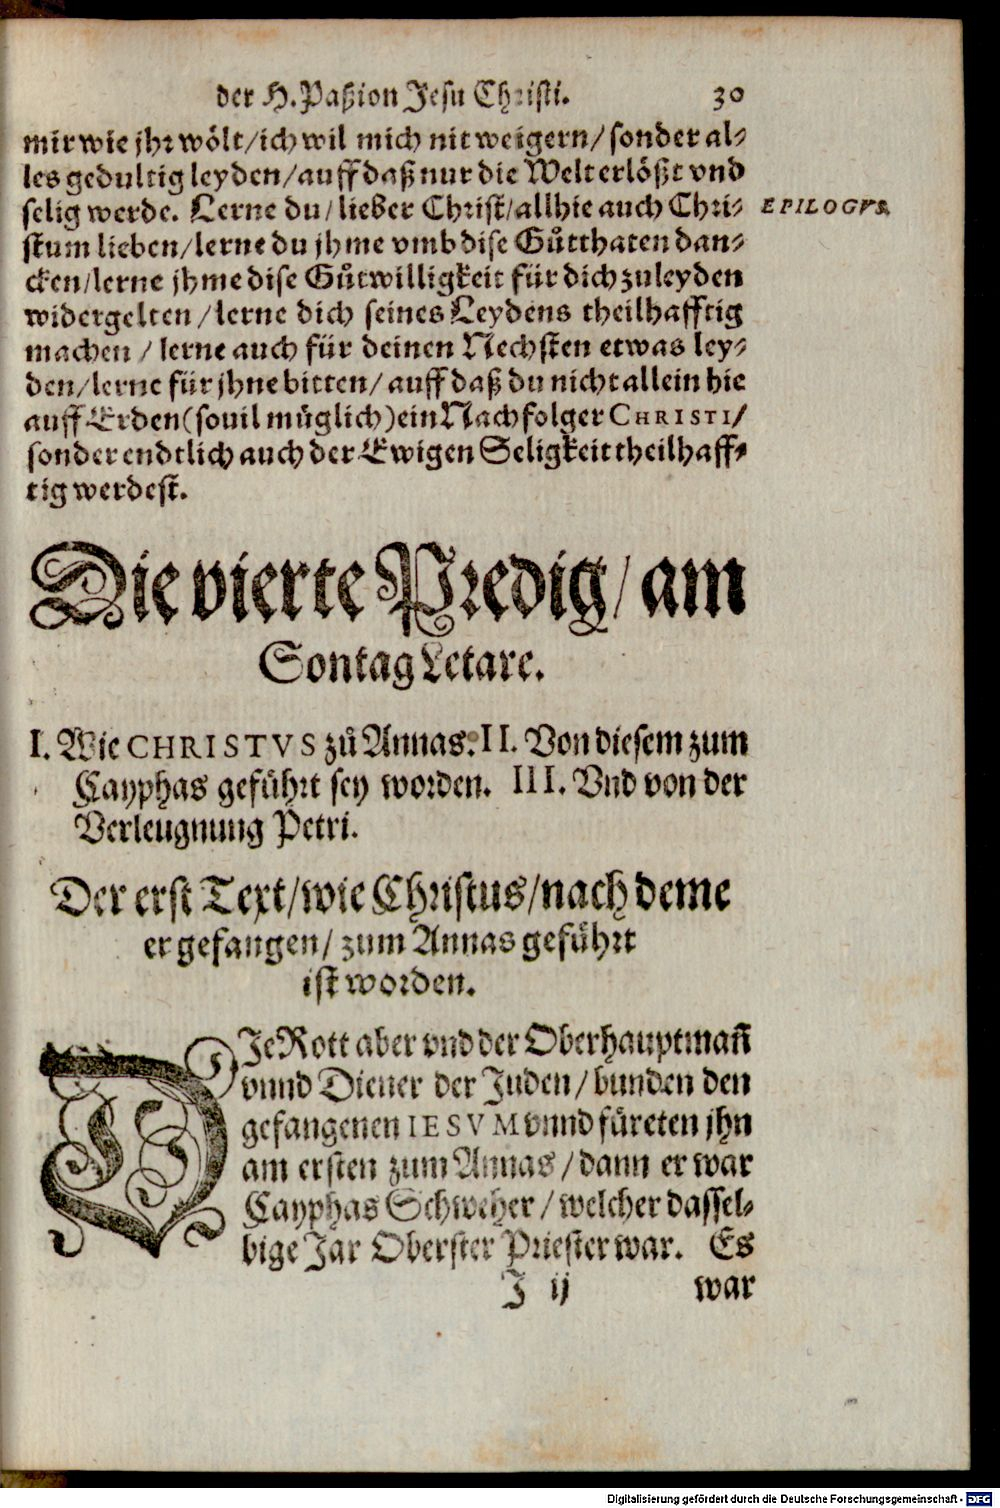 der H. Paßion Jesu Christi. 30
mir wie jhr wölt/ ich wil mich nit weigern/ sonder al-
les gedultig leyden/ auff daß nur die Welt erlößt vnd
selig werde. Lerne du/ lieber Christ/ allhie auch Chri-
EPILOGVS.
stum lieben/ lerne du jhme vmb dise Gůtthaten dan-
cken/ lerne jhme dise Gůtwilligkeit für dich zuleyden
widergelten/ lerne dich seines Leydens theilhafftig
machen/ lerne auch für deinen Nechsten etwas ley-
den/ lerne für jhne bitten/ auff daß du nicht allein hie
auff Erden (souil müglich) ein Nachfolger CHRISTI/
sonder endtlich auch der Ewigen Seligkeit theilhaff-
tig werdest.
Die vierte Predig/ am
Sontag Letare.
I. Wie CHRISTVS zů Annas. II. Von diesem zum
Cayphas geführt sey worden. III. Vnd von der
Verleugnung Petri.
Der erst Text/ wie Christus/ nach deme
er gefangen/ zum Annas geführt
ist worden.
DIe Rott aber vnd der Oberhauptmañ
vnnd Diener der Juden/ bunden den
gefangenen IESVM vnnd füreten jhn
am ersten zum Annas/ dann er war
Cayphas Schweher/ welcher dassel-
bige Jar Oberster Priester war. Es
J ij war
Digitalisierung gefördert durch die Deutsche Forschungsgemeinschaft - DFG